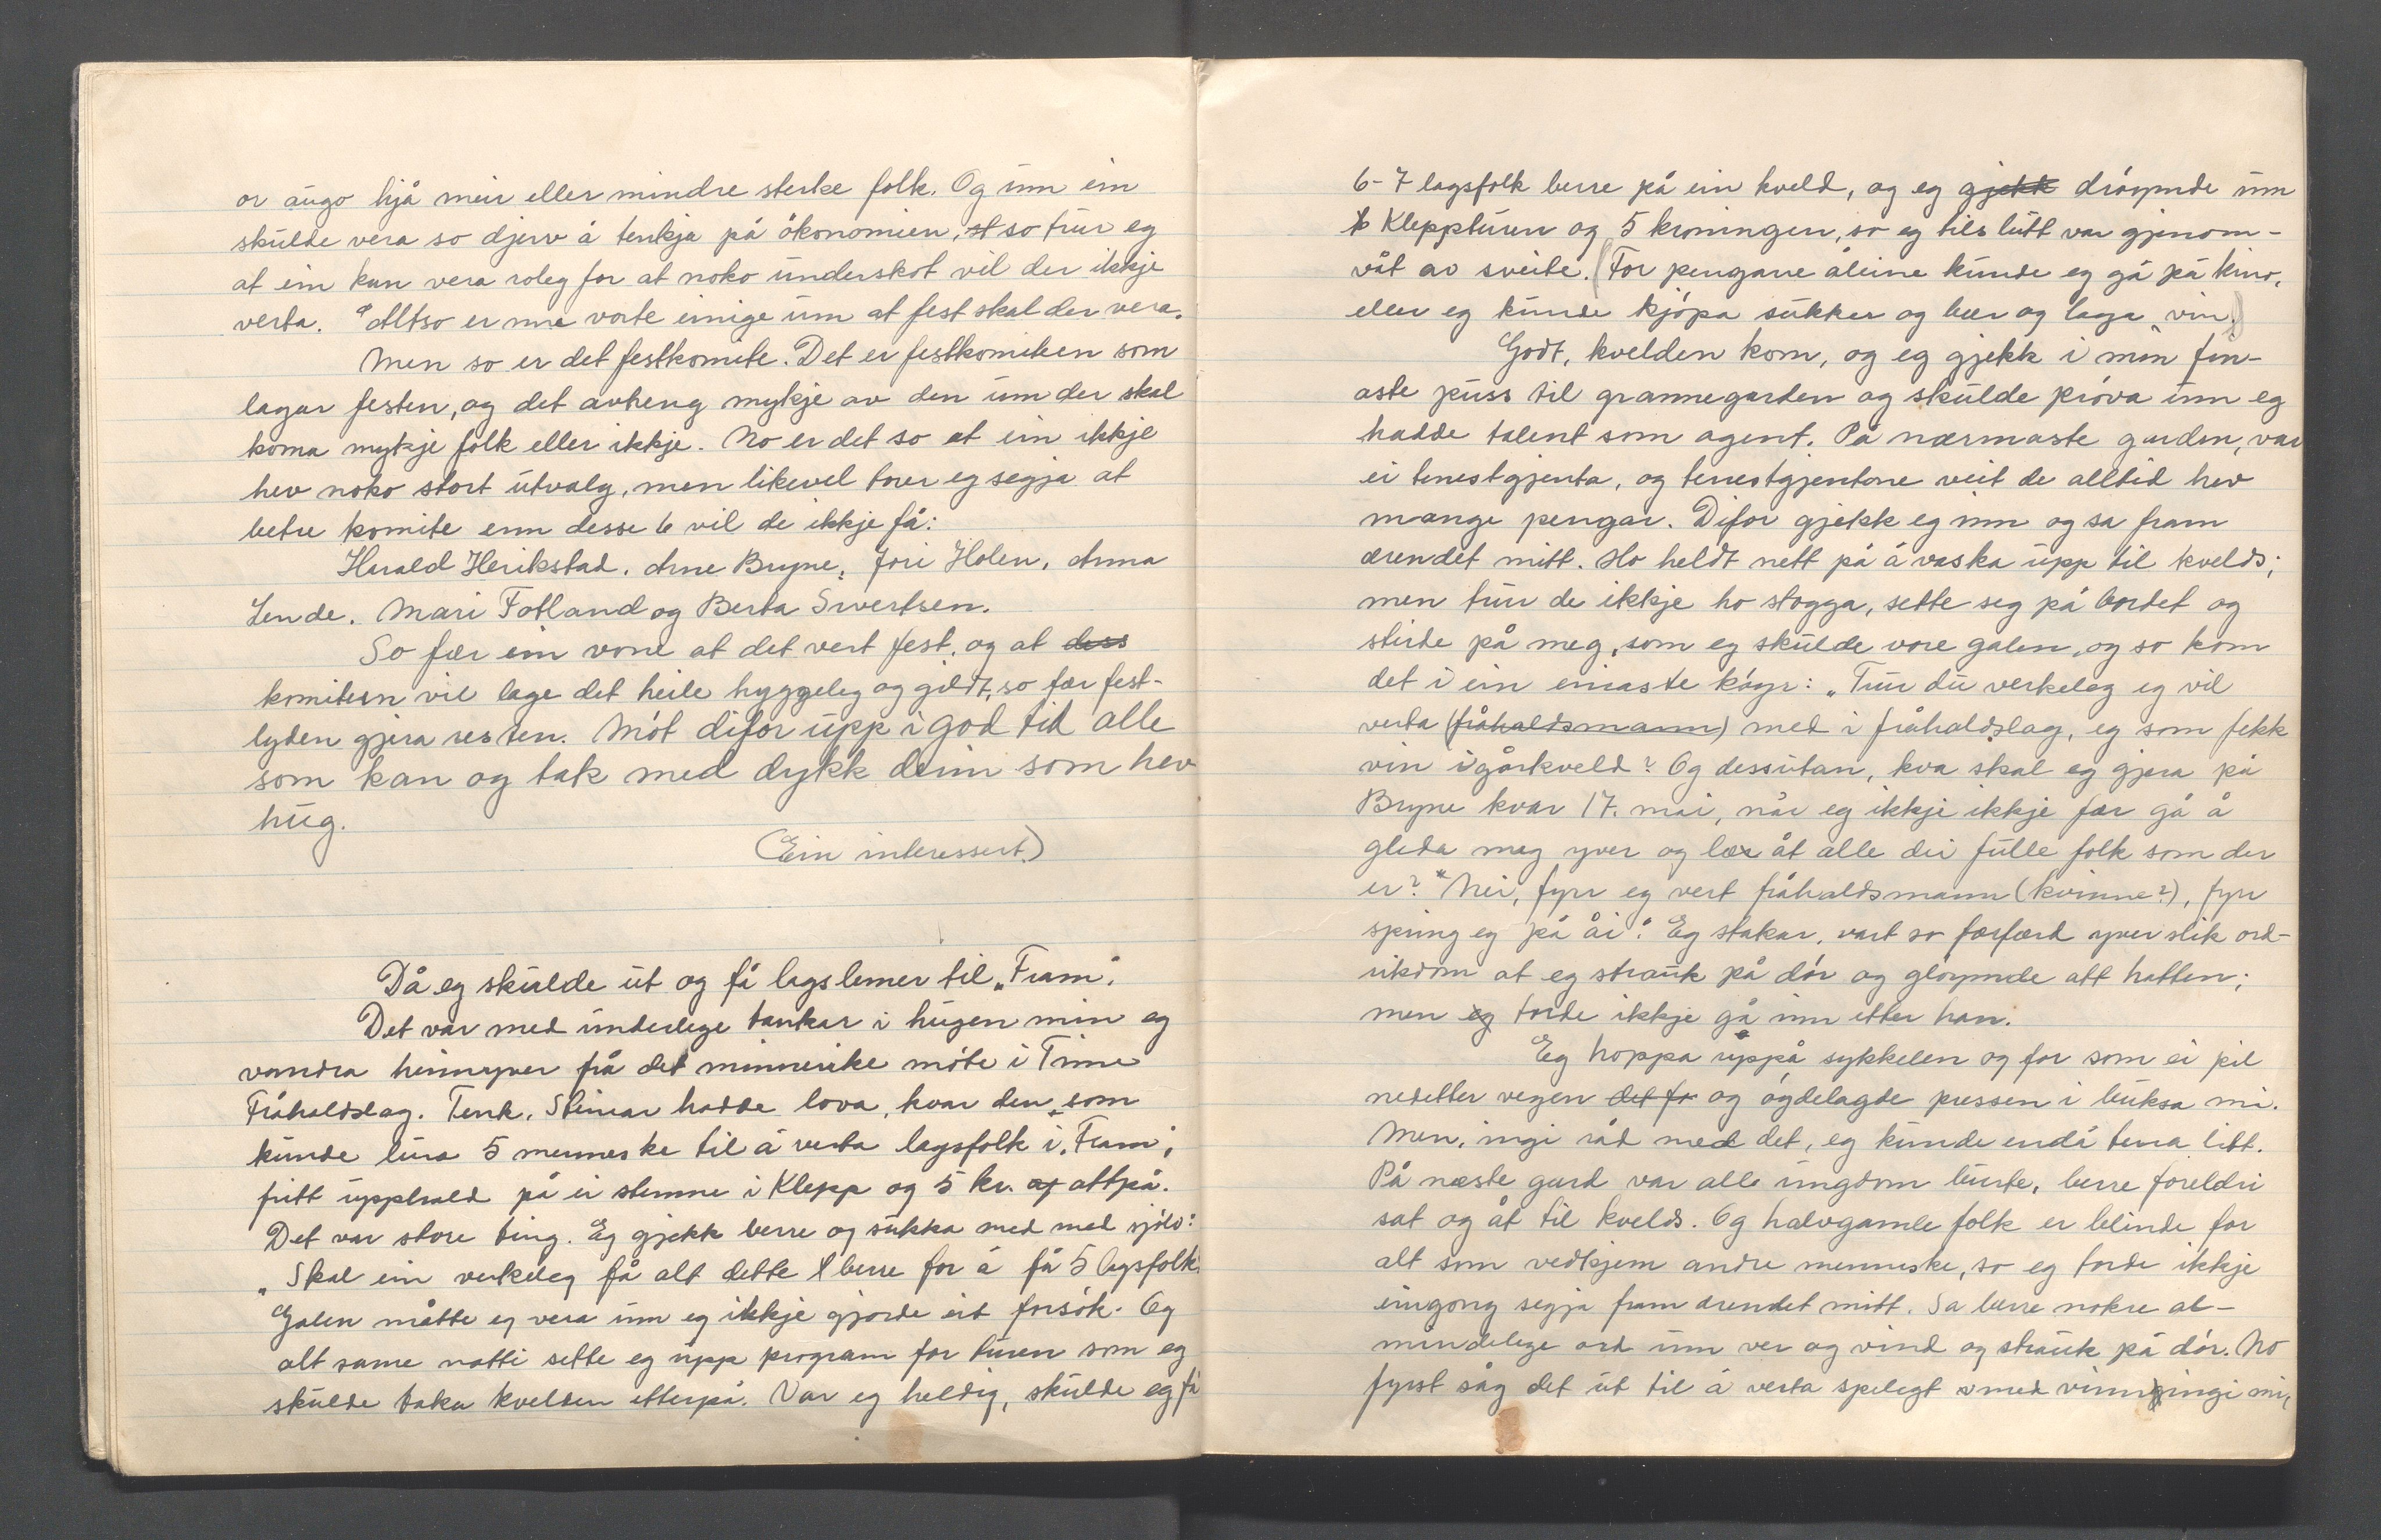 or augo hjå meir eller mindre sterke folk. Og um ein
skulde vera so djerv å tenkja på økonomien, at so trur eg
at ein kan vera roleg for at noko underskot vil der ikkje
verta. Altso er me vorte einige um at fest skal der vera.
Men so er det festkomite. Det er festkomiteen som
lagar festen, og det avheng mykje av den um der skal
koma mykje folk eller ikkje. No er det so at ein ikkje
hev noko stort utvalg, men likevel torer eg segja at
betre komite enn desse 6 vil de ikkje få:
Harald Herikstad. Arne Bryne, Jori Holen, Anna
Lende. Mari Fotland og Berta Sivertsen.
So fær ein vone at det vert fest, og at dess
komiteen vil lage det heile hyggeleg og gildt, so fær fest-
lyden gjera resten. Møt difor upp i god tid alle
som kan og tak med dykk deim som hev
hug.
(Ein interessert.)
Då eg skulde ut og få lagslemer til „Fram".
Det var med underlege tankar i hugen min eg
vandra heimyver frå det minnerike møte i Time
Fråhaldslag. Tenk. Steinar hadde lova, kvar den som
kunde lura 5 menneske til å verta lagsfolk i „Fram",
fritt upphald på ei stemne i Klepp og 5 kr. og attpå.
Det var store ting. Eg gjekk berre og sukka med med sjølv:
„Skal ein verkeleg få alt dette berre for å få 5 lagsfolk.
Galen måtte eg vera um eg ikkje gjorde eit forsøk. Og
alt same natti sette eg upp program for turen som eg
skulde taka kvelden etterpå. Var eg heldig, skulde eg få
6-7 lagsfolk berre på ein kveld, og eg gjekk drøymde um
Kleppturen og 5 kroningen, so eg tilslutt var gjenom-
våt av sveite. (For pengane åleine kunde eg gå på kino,
eller eg kunde kjøpa sukker og bær og laga vin.)
Godt, kvelden kom, og eg gjekk i min fin-
aste puss til grannegarden og skulde prøva um eg
hadde talent som agent. På nærmaste garden, var
ei tenestgjenta, og tenestgjentone veit de alltid hev
mange pengar. Difor gjekk eg inn og sa fram
ærendet mitt. Ho heldt nett på å vaska upp til kvelds;
men trur de ikkje ho stogga, sette seg på bordet og
stirde på meg, som eg skulde vore galen, og so kom
det i ein einaste køyr: „Trur du verkeleg eg vil
verta (fråhaldsmann) med i fråhaldslag, eg som fekk
vin igårkveld? Og dessutan, kva skal eg gjera på
Bryne kvar 17. mai, når eg ikkje ikkje fær gå å
gleda meg yver og læ åt alle dei fulle folk som der
er? Nei, fyrr eg vert fråhaldsmann (kvinne?), fyrr
spring eg på åi". Eg stakar, vart so forfærd yver slik ord-
rikdom at eg strauk på dør og gløymde att hatten;
men eg torde ikkje gå inn etter han.
Eg hoppa uppå sykkelen og for som ei pil
nedetter vegen det fr og øgdelagde pressen i buksa mi.
Men, ingi råd med det, eg kunde endå tena litt.
På næste gard var alle ungdom burte, berre foreldri
sat og åt til kvelds. Og halvgamle folk er blinde for
alt som vedkjem andre menneske, so eg torde ikkje
eingong segja fram ærendet mitt. Sa berre nokre al-
mindelege ord um ver og vind og strauk på dør. No
fyrst såg det ut til å verta spelegt med vinningi mi,